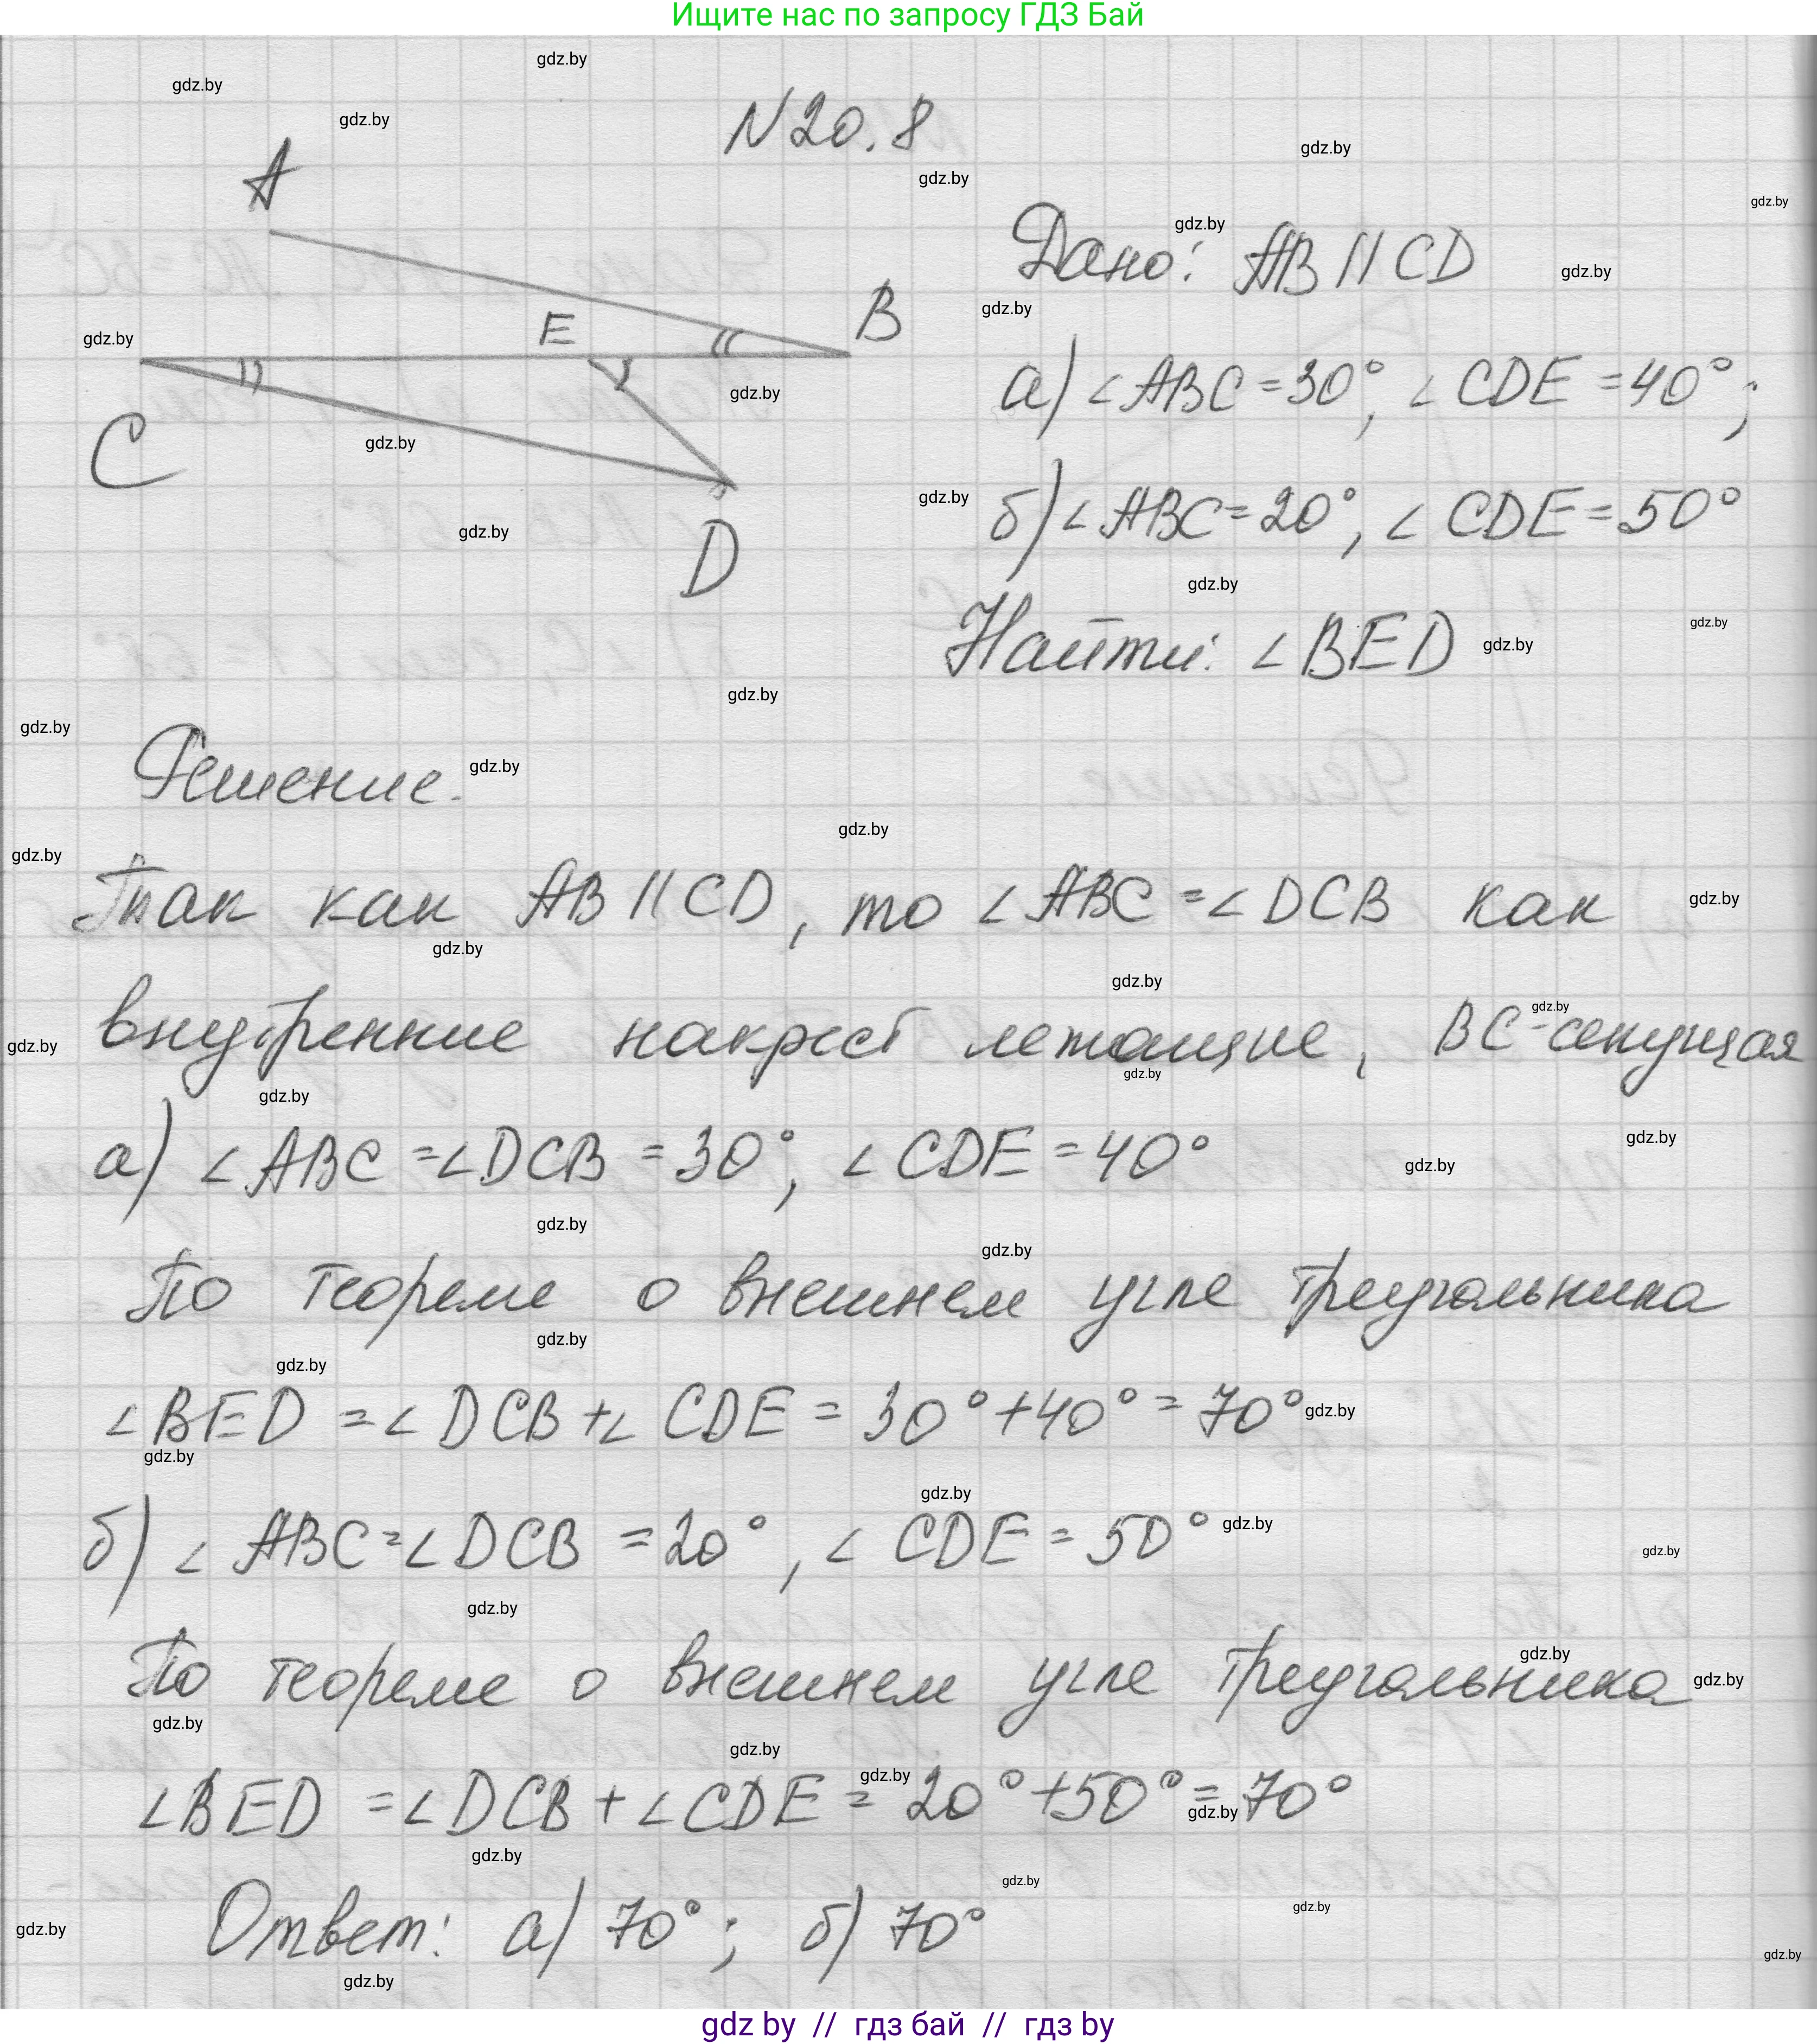 Ищите нас по запросу ГДЗ Бай
N 20.8
A
B
E
C
D
Дано: AB || CD
а) ∠ABC = 30°, ∠CDE = 40°;
б) ∠ABC = 20°, ∠CDE = 50°
Найти: ∠BED
Решение.
Так как AB || CD, то ∠ABC = ∠DCB как
внутренние накрест лежащие, BC - секущая
а) ∠ABC = ∠DCB = 30°, ∠CDE = 40°
По теореме о внешнем угле треугольника
∠BED = ∠DCB + ∠CDE = 30° + 40° = 70°
б) ∠ABC = ∠DCB = 20°, ∠CDE = 50°
По теореме о внешнем угле треугольника
∠BED = ∠DCB + ∠CDE = 20° + 50° = 70°
Ответ: а) 70°; б) 70°
gdz by // гдз бай // гдз by